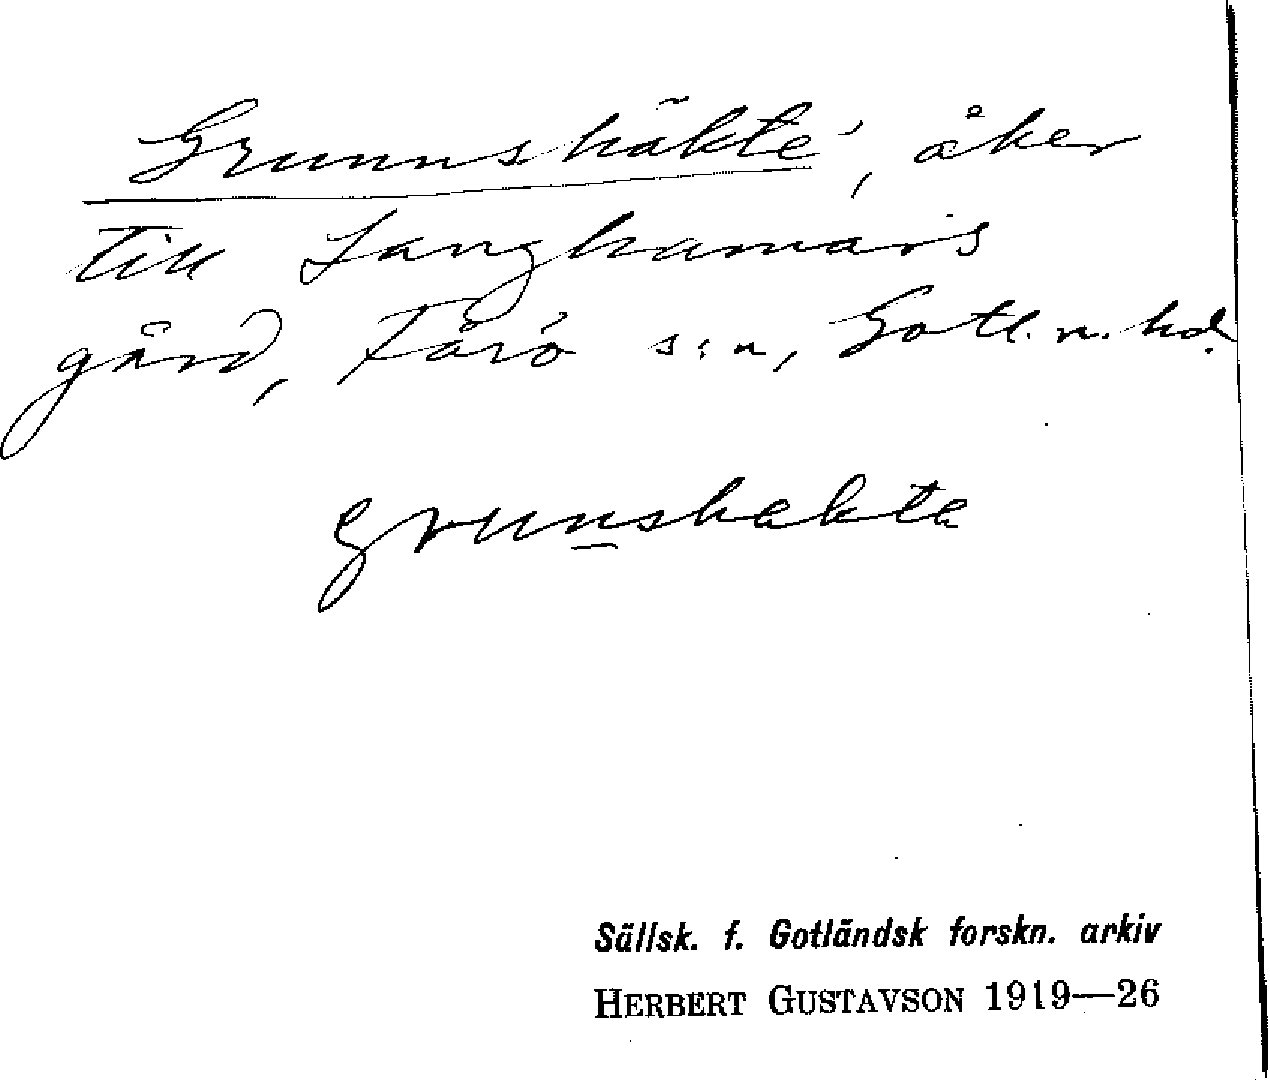 Grunnshäkte, åker
till Langhamars
gård, Fårö s:n, Gotl. n. hd.
grunshakta
Sällsk. f. Gotländsk forskn. arkiv
HERBERT GUSTAVSON 1919—26